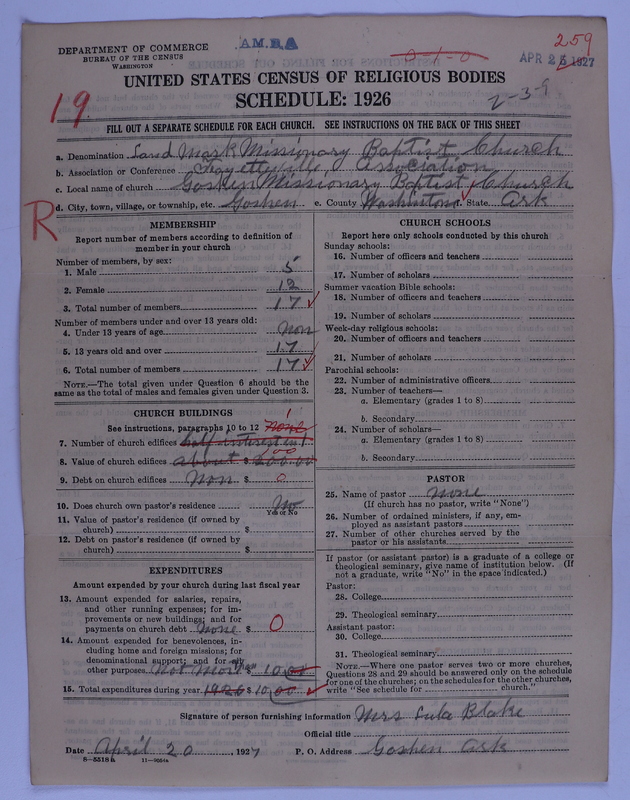 DEPARTMENT OF COMMERCE
BUREAU OF THE CENSUS
WASHINGTON
A.M.B.A
0-1-0
259
APR 25 1927
UNITED STATES CENSUS OF RELIGIOUS BODIES
SCHEDULE: 1926
2-3-9
19
FILL OUT A SEPARATE SCHEDULE FOR EACH CHURCH. SEE INSTRUCTIONS ON THE BACK OF THIS SHEET
a. Denomination Land Mark Missionary Baptist Church
b. Association or Conference Fayetteville Association
c. Local name of church Goshen Missionary Baptist Church
d. City, town, village, or township, etc. Goshen e. County Washington f. State Ark
R
MEMBERSHIP
Report number of members according to definition of
member in your church
Number of members, by sex:
1. Male 5
2. Female 12
3. Total number of members 17
Number of members under and over 13 years old:
4. Under 13 years of age non
5. 13 years old and over 17
6. Total number of members 17
NOTE.—The total given under Question 6 should be the
same as the total of males and females given under Question 3.
CHURCH BUILDINGS
See instructions, paragraphs 10 to 12 none
7. Number of church edifices half interest in 1
8. Value of church edifices about $ 200.00
9. Debt on church edifices Non $ 0
10. Does church own pastor's residence No
Yes or No
11. Value of pastor's residence (if owned by
church) $
12. Debt on pastor's residence (if owned by
church) $
EXPENDITURES
Amount expended by your church during last fiscal year
13. Amount expended for salaries, repairs,
and other running expenses; for im-
provements or new buildings; and for
payments on church debt none $ 0
14. Amount expended for benevolences, in-
cluding home and foreign missions; for
denominational support; and for all
other purposes Not more $ 10.00
15. Total expenditures during year 1926 $ 10.00
CHURCH SCHOOLS
Report here only schools conducted by this church
Sunday schools:
16. Number of officers and teachers
17. Number of scholars
Summer vacation Bible schools:
18. Number of officers and teachers
19. Number of scholars
Week-day religious schools:
20. Number of officers and teachers
21. Number of scholars
Parochial schools:
22. Number of administrative officers
23. Number of teachers—
a. Elementary (grades 1 to 8)
b. Secondary
24. Number of scholars—
a. Elementary (grades 1 to 8)
b. Secondary
PASTOR
25. Name of pastor none
(If church has no pastor, write "None")
26. Number of ordained ministers, if any, em-
ployed as assistant pastors
27. Number of other churches served by the
pastor or his assistants
If pastor (or assistant pastor) is a graduate of a college or
theological seminary, give name of institution below. (If
not a graduate, write "No" in the space indicated.)
Pastor:
28. College
29. Theological seminary
Assistant pastor:
30. College
31. Theological seminary
NOTE.—Where one pastor serves two or more churches,
Questions 28 and 29 should be answered only on the schedule
for one of the churches; on the schedules for the other churches,
write "See schedule for church."
Signature of person furnishing information Mrs Lula Blake
Official title
Date April 20, 1927 P. O. Address Goshen Ark
8-5518 a